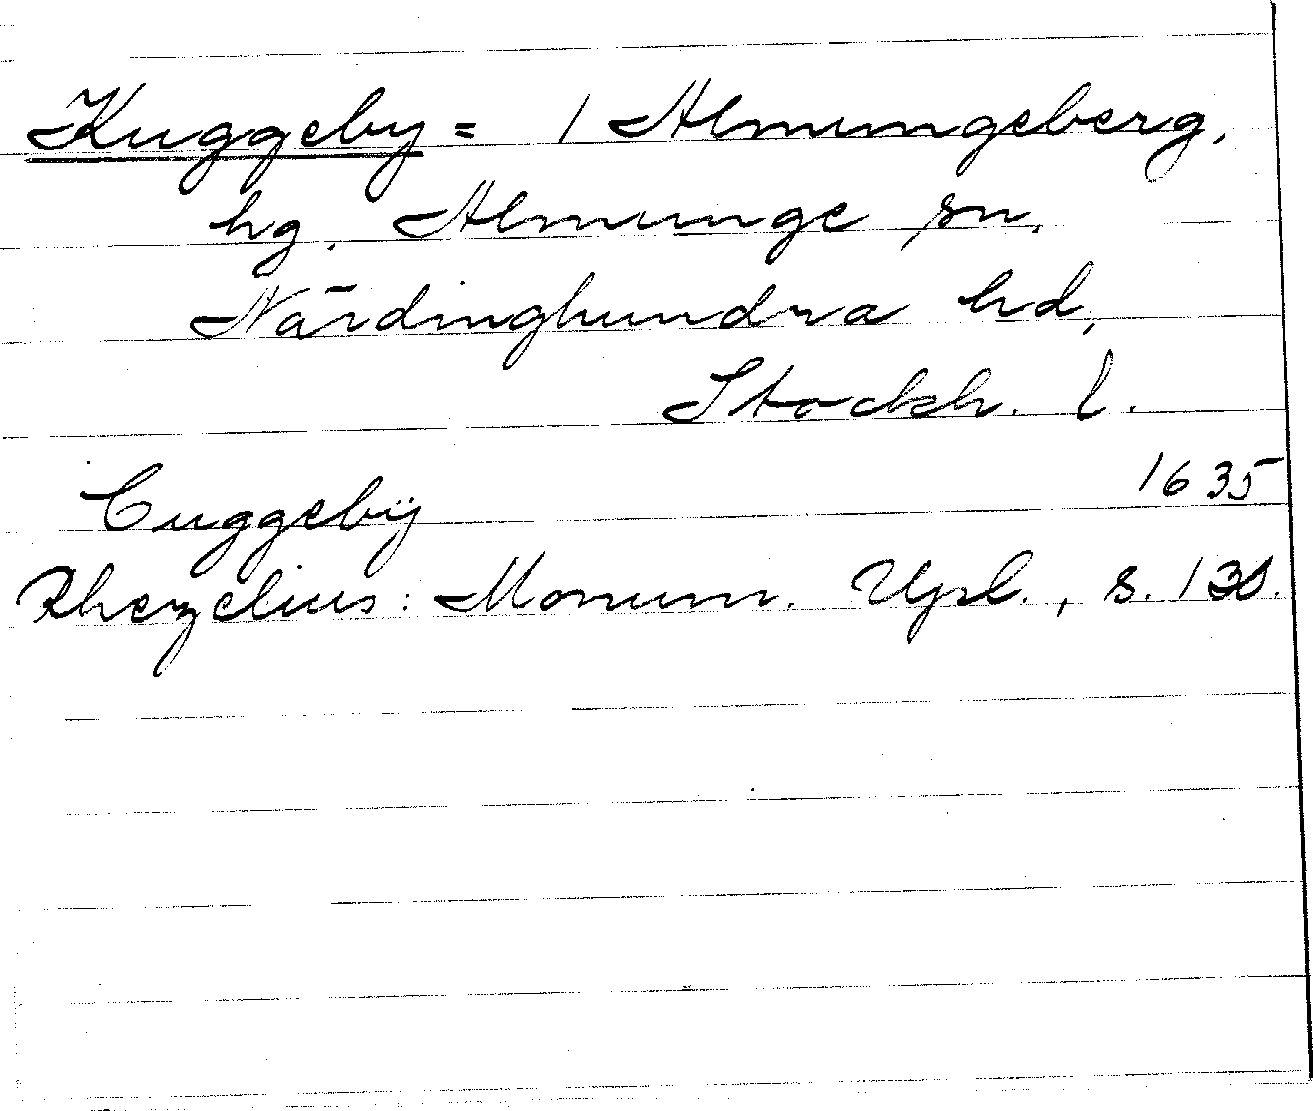 Kuggeby = 1 Almungeberg,
hg. Almunge sn,
Närdinghundra hd,
Stockh. l.
Cuggebÿ 1635
Rhezelius: Monum. Upl., s.